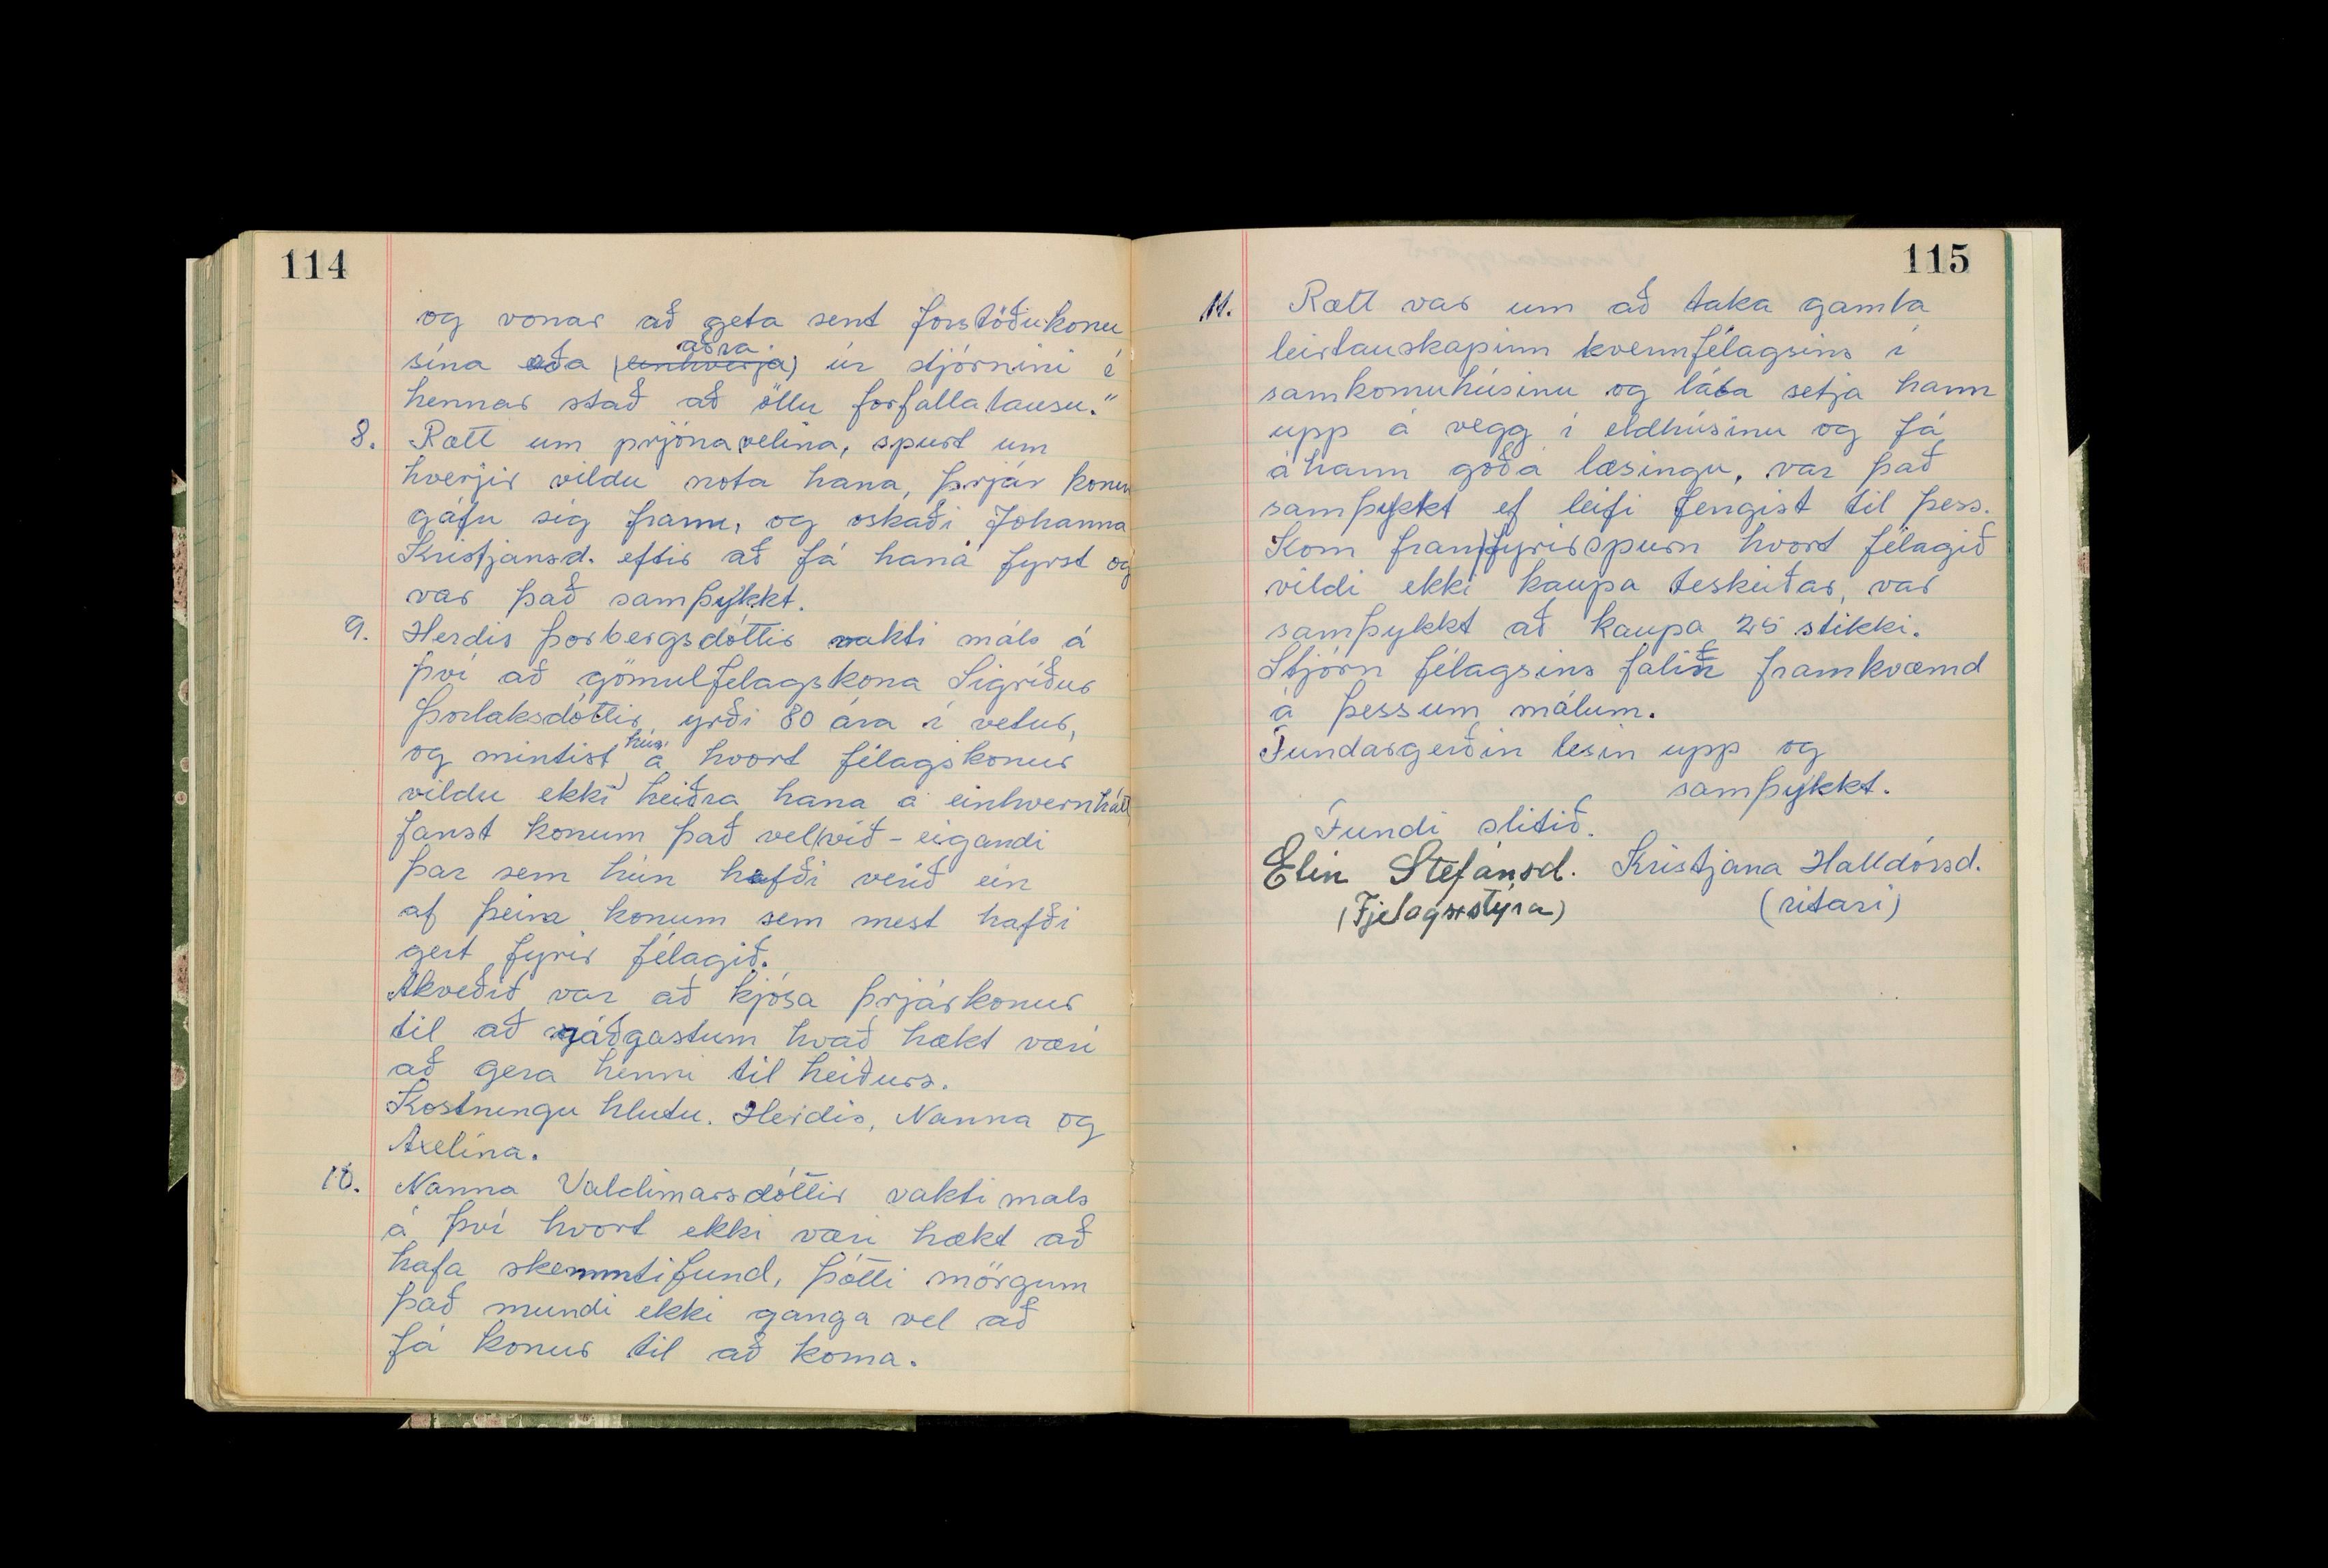 114
og vonar að geta sent forstöðukonu
sína eða (einhverja) aðra úr stjórnini í
hennar stað að öllu forfallalausu."
8. Rætt um prjónavelina, spurt um
hverjir vildu nota hana, þrjár konur
gáfu sig fram, og oskaði Johanna
Kristjansd. eftir að fá hana fyrst og
var það samþykkt.
9. Herdis Þorbergsdóttir vakti máls á
því að gömul felagskona Sigríður
Þorlaksdóttir yrði 80 ára í vetur,
og mintist hún á hvort félagskonur
vildu ekki heiðra hana á einhvern hátt
fanst konum það vel við-eigandi
þar sem hún hafði verið ein
af þeira konum sem mest hafði
gert fyrir félagið.
Akveðið var að kjósa þrjár konur
til að ráðgastum hvað hækt væri
að gera henni til heiðurs.
Kostningu hlutu. Herdis, Nanna og
Axelína.
10. Nanna Valdimarsdóttir vakti mals
á því hvort ekki væri hækt að
hafa skemmtifund, þótti mörgum
það mundi ekki ganga vel að
fá konur til að koma.
115
11. Rætt var um að taka gamla
leirtauskapinn kvennfélagsins í
samkomuhúsinu og láta setja hann
upp á vegg í eldhúsinu og fá
á hann góða læsingu, var það
samþykkt ef leifi fengist til þess.
Kom fram fyrirspurn hvort félagið
vildi ekki kaupa teskeiðar, var
samþykkt að kaupa 25 stikki.
Stjórn félagsins falin framkvæmd
á þessum málum.
Fundargerðin lesin upp og
samþykkt.
Fundi slitið.
Elin Stefánsd. Kristjana Halldórsd.
(Fjelagsstýra) (ritari)